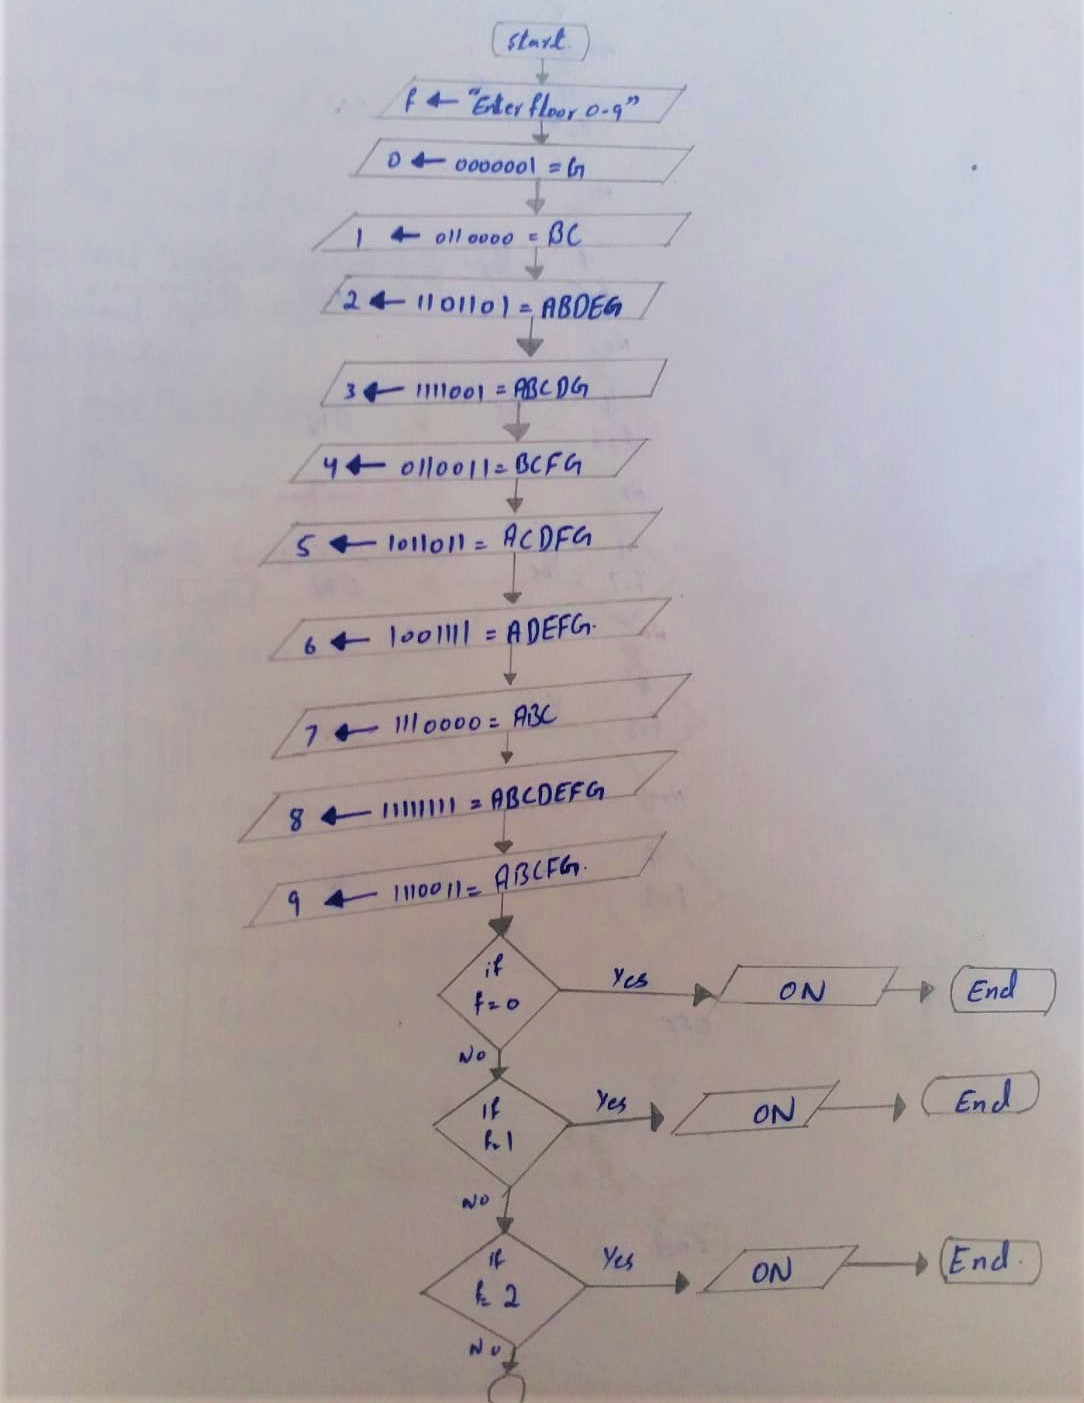 Start.
f ← "Enter floor 0-9"
0 ← 0000001 = G
1 ← 0110000 = BC
2 ← 1101101 = ABDEG
3 ← 1111001 = ABCDG
4 ← 0110011 = BCFG
5 ← 1011011 = ACDFG
6 ← 1001111 = ADEFG.
7 ← 1110000 = ABC
8 ← 11111111 = ABCDEFG
9 ← 1110011 = ABCFG.
if
f=0
Yes
ON
End
No
if
f=1
Yes
ON
End
No
if
f= 2
Yes
ON
End.
No